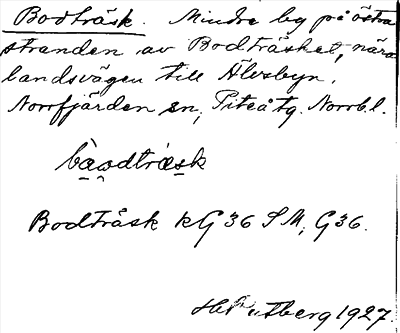 Bodträsk. Mindre by på östra
stranden av Bodträsket, nära
landsvägen till Älvsbyn.
Norrfjärden sn, Piteå tg. Norrb.l.
bàωdtræsk
Bodträsk KG 36 SM, G 36.
1927.